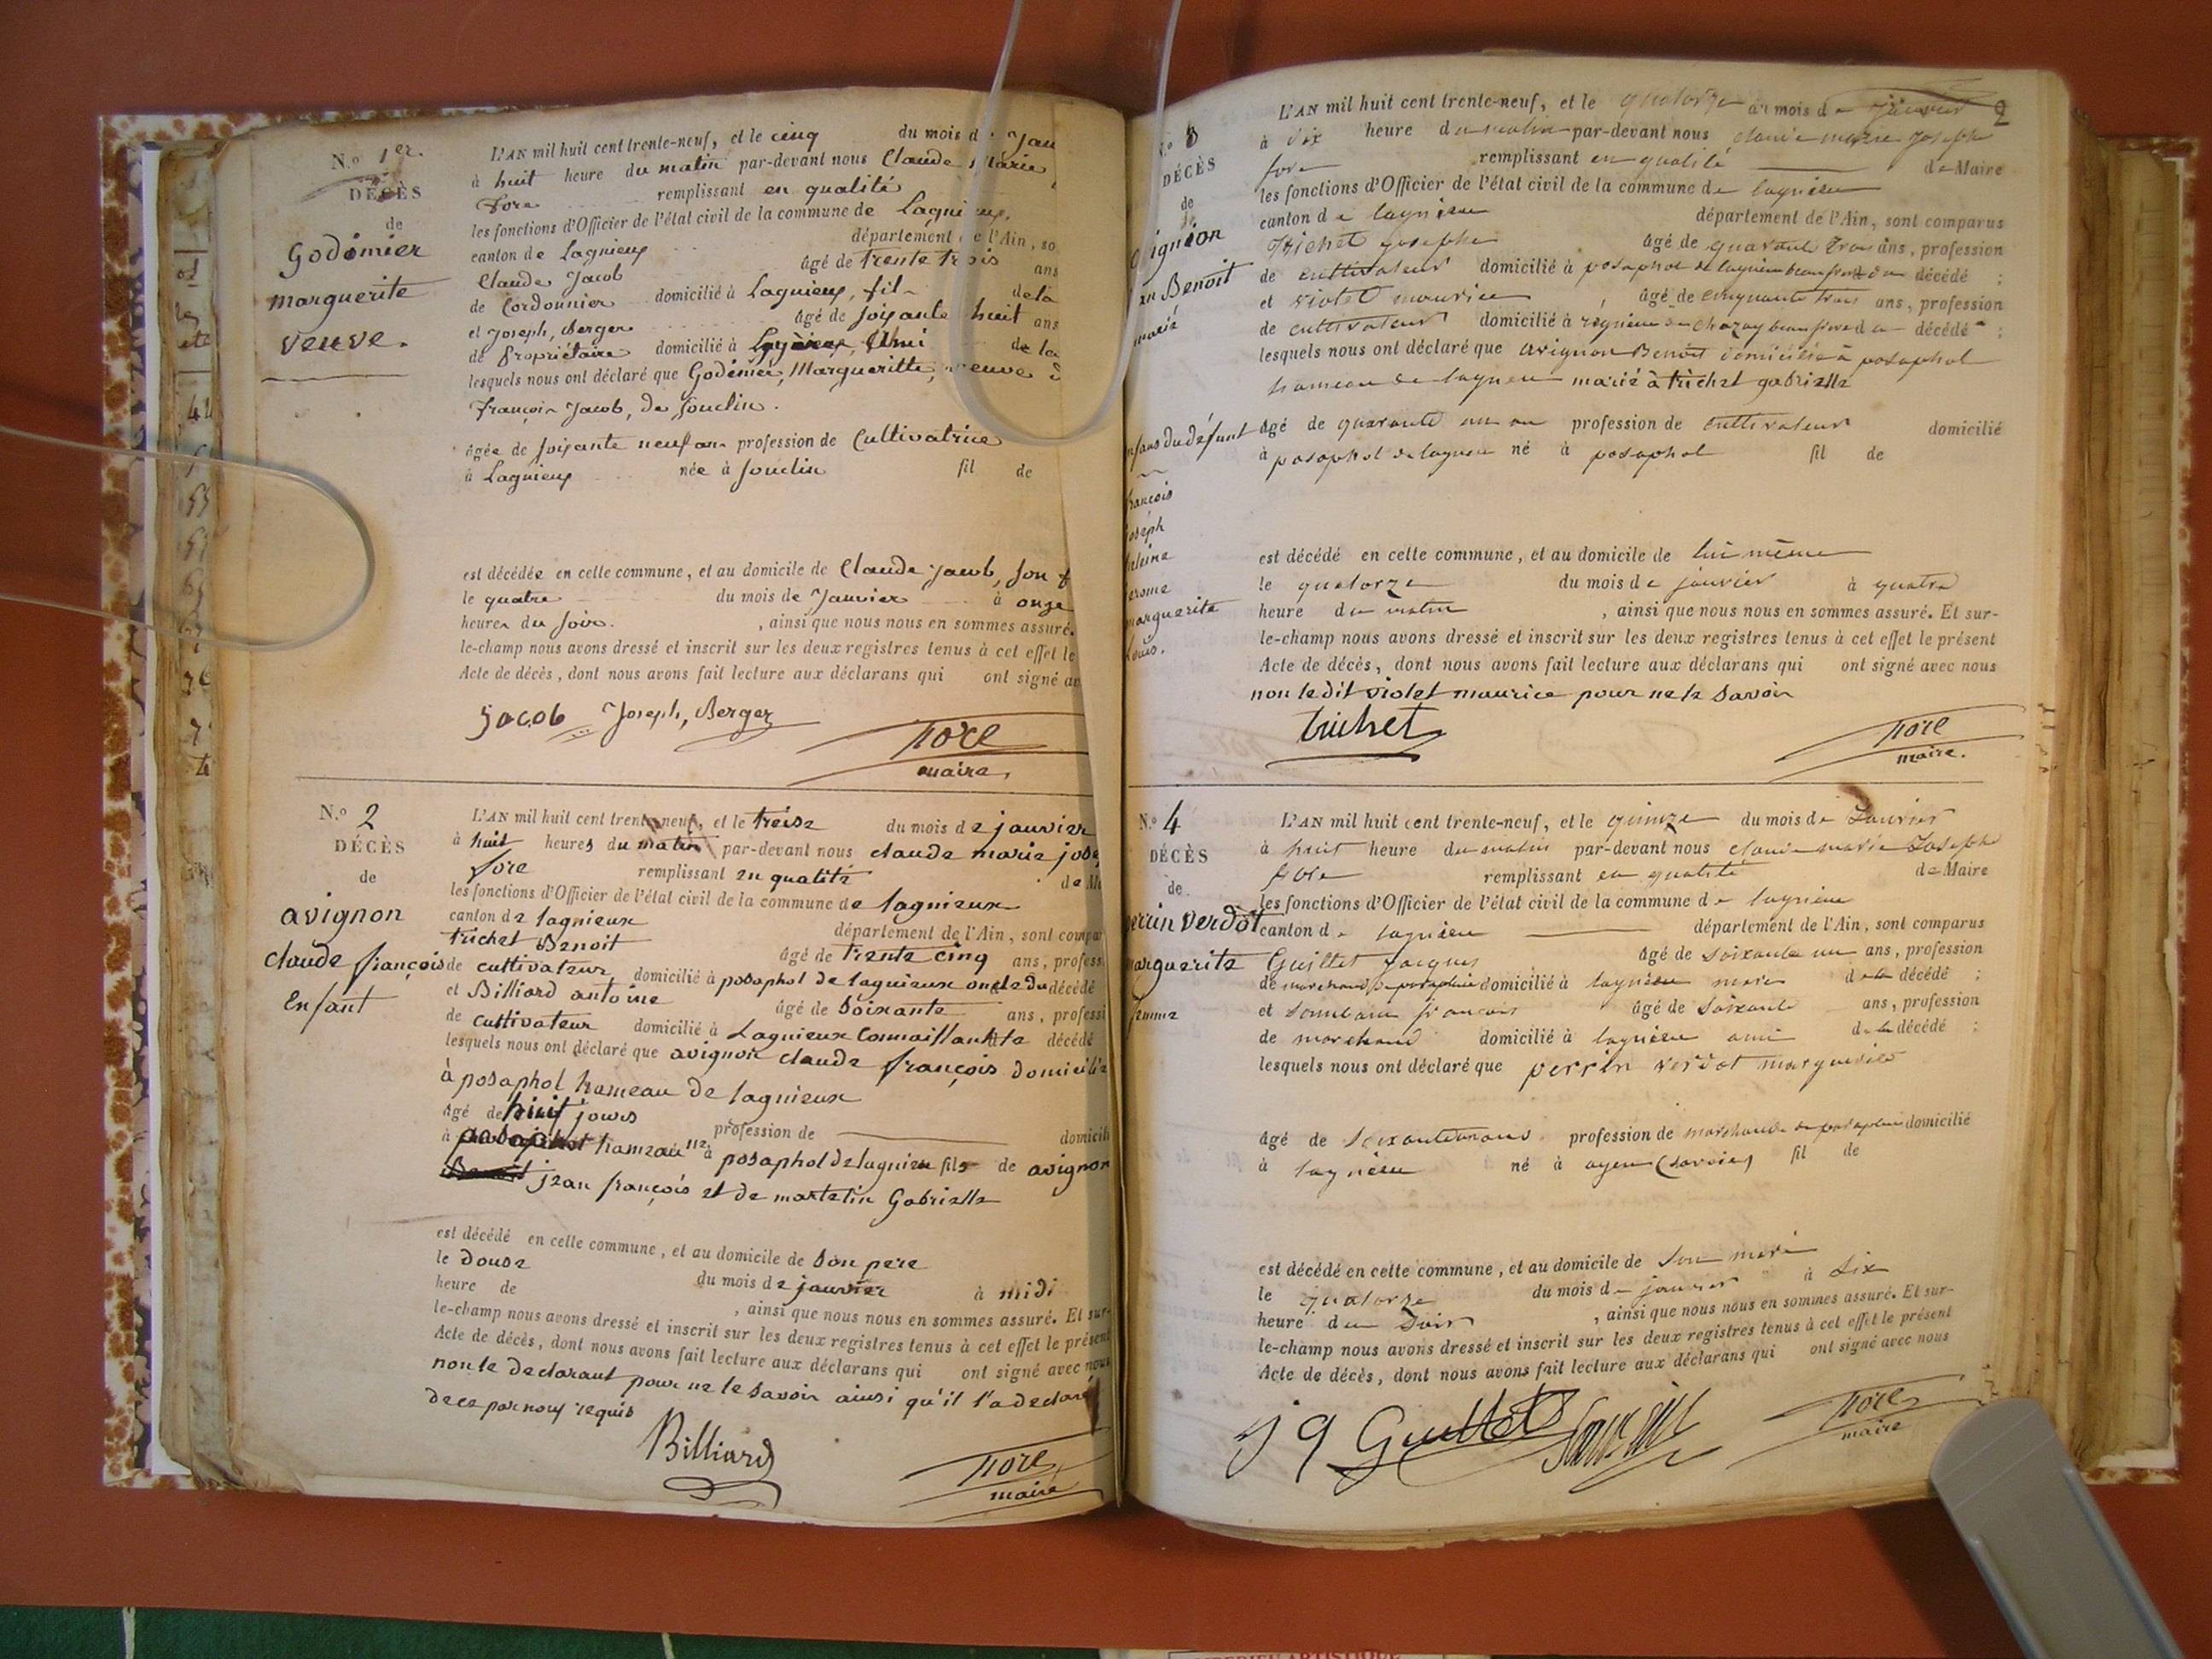 N.o 1er.
DÉCÈS
de
Godémier
marguerite
veuve.
L'AN mil huit cent trente-neuf, et le cinq du mois d Jan
à huit heure du matin par-devant nous Claude Marie
Fore remplissant en qualité
les fonctions d'Officier de l'état civil de la commune de Lagnieux,
canton de Lagnieux département de l'Ain, so
Claude Jacob âgé de trente trois ans
de Cordonnier domicilié à Lagnieux, fil dela
et Joseph, Berger âgé de soixante huit ans
de Propriétaire domicilié à Ami de la
lesquels nous ont déclaré que Godémier, Margueritte, veuve d
François Jacob, de Souclin.
âgée de soixante neuf ans profession de Cultivatrice
à Lagnieux née à Souclin fil de
est décédée en cette commune, et au domicile de Claude Jacob, son f
le quatre du mois de Janvier à onze
heures du soir. , ainsi que nous nous en sommes assuré.
le-champ nous avons dressé et inscrit sur les deux registres tenus à cet effet le
Acte de décès, dont nous avons fait lecture aux déclarans qui ont signé av
jacob Joseph, Berger
Fore
maire,
N.o 2
DÉCÈS
de
avignon
claude françois
Enfant
L'AN mil huit cent trente-neuf, et le treise du mois de janvier
à huit heures du matin par-devant nous claude marie jose
Fore remplissant en qualité de Ma
les fonctions d'Officier de l'état civil de la commune de lagnieux
canton de lagnieux département de l'Ain, sont compar
trichet Benoit âgé de trente cinq ans, profess
de cultivateur domicilié à posaphol de lagnieux oncle du décédé
et Billiard antoine âgé de soixante ans, professi
de cultivateur domicilié à Lagnieux Connaissant le décédé
lesquels nous ont déclaré que avignon claude françois domicilié
à posaphol hameau de lagnieux
âgé de huit jours profession de domicili
à posaphol hameau né à posaphol de lagnieu fils de avignon
Benoit jean françois et de martelin Gabrielle
est décédé en cette commune, et au domicile de son pere
le douse du mois de janvier à midi
heure de , ainsi que nous nous en sommes assuré. Et sur-
le-champ nous avons dressé et inscrit sur les deux registres tenus à cet effet le présent
Acte de décès, dont nous avons fait lecture aux déclarans qui ont signé avec nous
non le declarant pour ne le savoir ainsi qu'il l'a declaré
dece par nous requis
Billiard
Fore
maire
2
N.o 3
DÉCÈS
de
avignon
an Benoit
marié
enfans du défunt
françois
joseph
jerome
marguerite
Louis.
L'AN mil huit cent trente-neuf, et le quatorze du mois de janvier
à dix heure du matin par-devant nous claude marie joseph
fore remplissant en qualité de Maire
les fonctions d'Officier de l'état civil de la commune de lagnieu
canton de lagnieu département de l'Ain, sont comparus
Trichet josephe âgé de quarante trois ans, profession
de cultivateur domicilié à posaphol de lagnieu beau frere du décédé ;
et violet maurice âgé de cinquante trois ans, profession
de cultivateur domicilié à beau frere du décédé ;
lesquels nous ont déclaré que avignon Benoit domicilié à posaphol
hameau de lagnieu marié à trichet gabrielle
âgé de quarante un an profession de cultivateur domicilié
à posaphol de lagnieu né à posaphol fil de
est décédé en cette commune, et au domicile de lui même
le quatorze du mois de janvier à quatre
heure du matin , ainsi que nous nous en sommes assuré. Et sur-
le-champ nous avons dressé et inscrit sur les deux registres tenus à cet effet le présent
Acte de décès, dont nous avons fait lecture aux déclarans qui ont signé avec nous
non le dit violet maurice pour ne le savoir
trichet
Fore
maire.
N.o 4
DÉCÈS
de
perrin verdot
marguerite
femme
L'AN mil huit cent trente-neuf, et le quinze du mois de Janvier
à huit heure du matin par-devant nous claude marie Josephe
fore remplissant en qualité de Maire
les fonctions d'Officier de l'état civil de la commune de lagnieu
canton de lagnieu département de l'Ain, sont comparus
Guillet Jacques âgé de soixante un ans, profession
de marchand domicilié à lagnieu mari de la décédé ;
et françois âgé de soixante ans, profession
de marchand domicilié à lagnieu ami de la décédé ;
lesquels nous ont déclaré que perrin verdot marguerite
âgé de profession de marchande domicilié
à lagnieu né à ayen (savoie) fil de
est décédé en cette commune, et au domicile de son mari
le quatorze du mois de janvier à six
heure du soir , ainsi que nous nous en sommes assuré. Et sur-
le-champ nous avons dressé et inscrit sur les deux registres tenus à cet effet le présent
Acte de décès, dont nous avons fait lecture aux déclarans qui ont signé avec nous
Guillet
Fore
maire